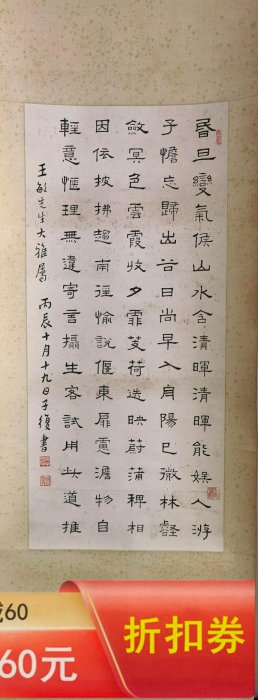 昏旦變氣候山水含清暉清暉能娛人游
子憺忘歸出谷日尚早入舟陽已微林壑
斂冥色雲霞收夕霏芰荷迭映蔚蒲稗相
因依披拂趨南徑愉說偃東扉慮澹物自
輕意愜理無違寄言攝生客試用此道推
王敏先生大雅屬 丙辰十月十九日子復書
60
60元
折扣券